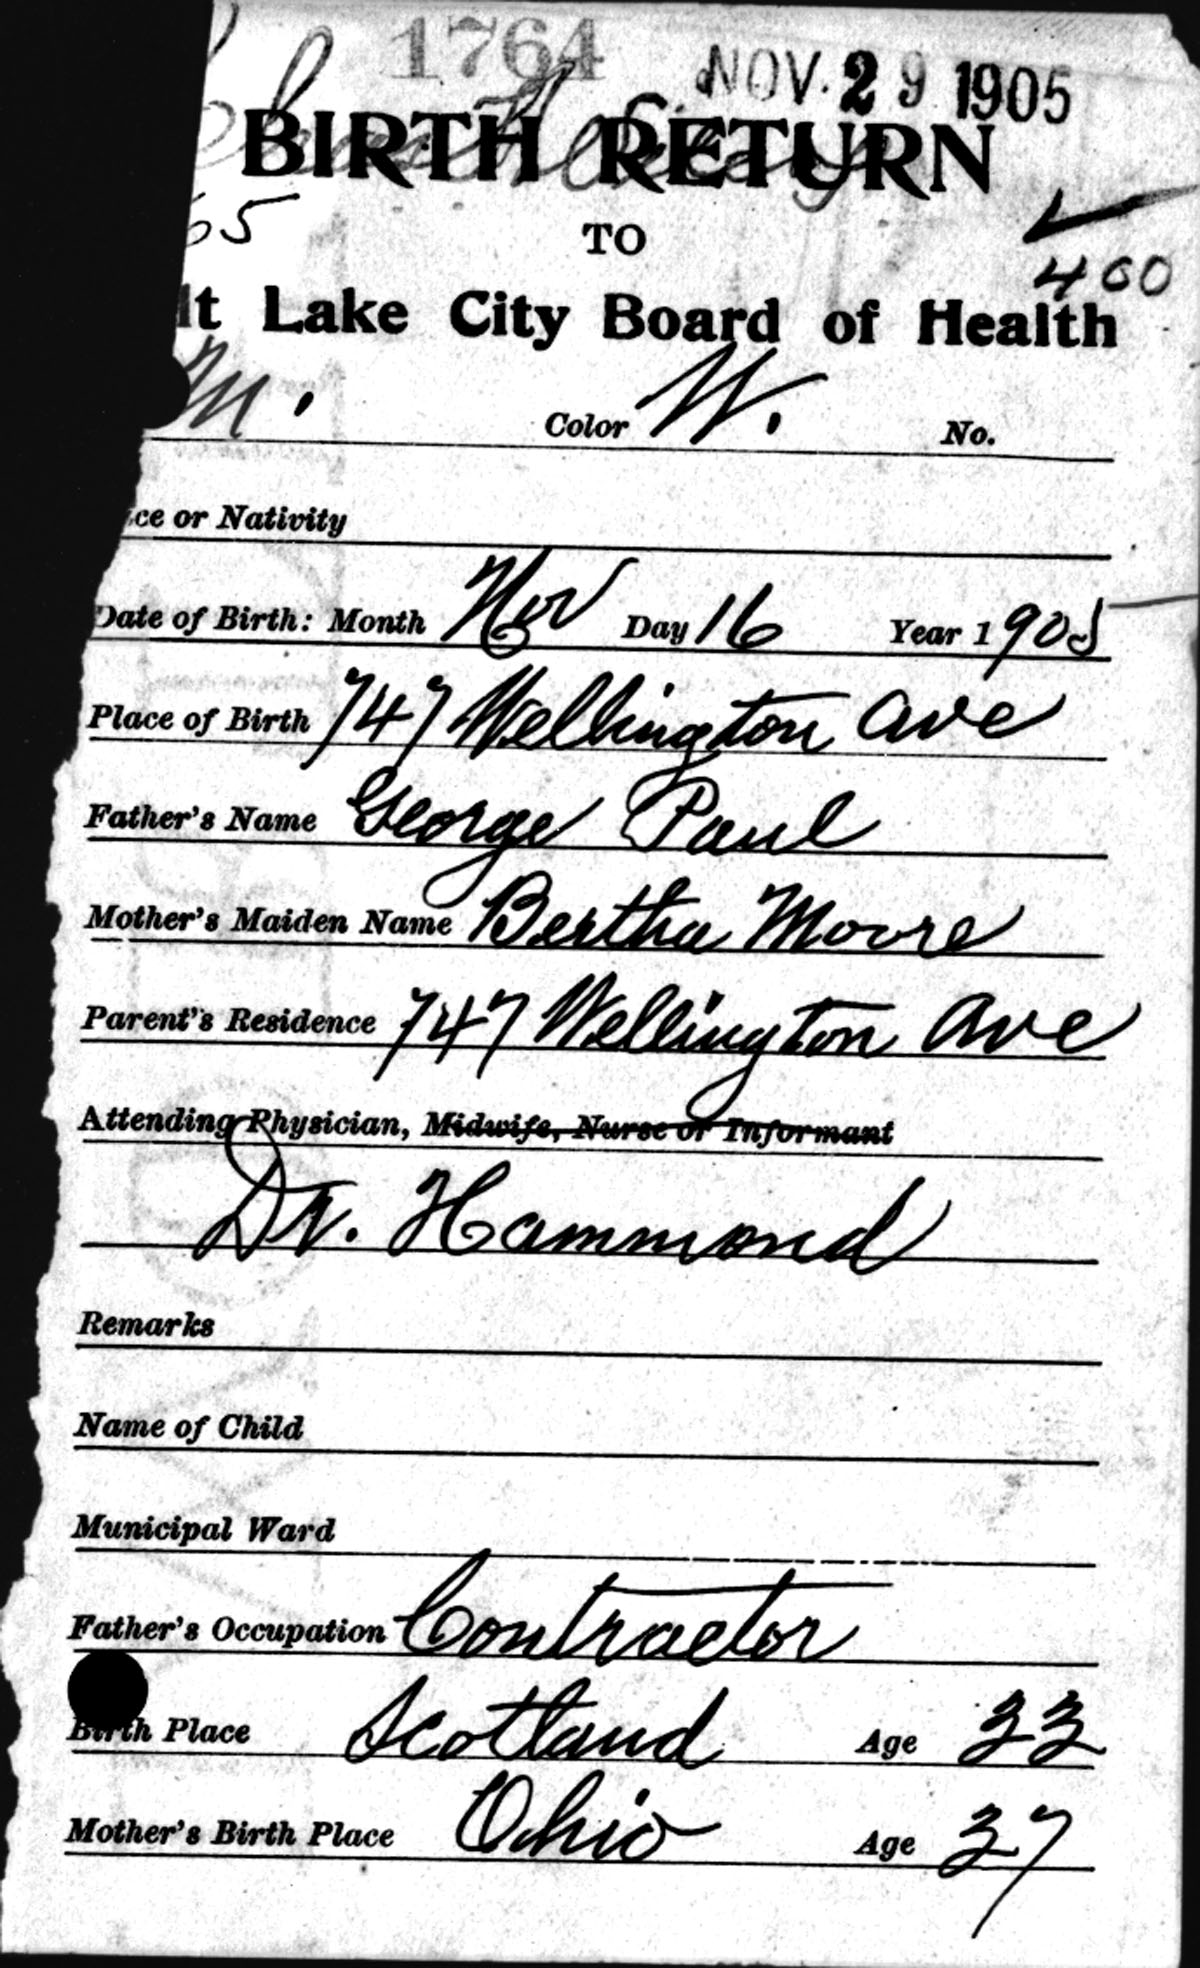 1764 NOV. 29 1905
BIRTH RETURN
55
TO
460
lt Lake City Board of Health
M. Color W. No.
ce or Nativity
Date of Birth: Month Nov Day 16 Year 1905
Place of Birth 747 Wellington Ave
Father's Name George Paul
Mother's Maiden Name Bertha Moore
Parent's Residence 747 Wellington Ave
Attending Physician, Midwife, Nurse or Informant
Dr. Hammond
Remarks
Name of Child
Municipal Ward
Father's Occupation Contractor
Birth Place Scotland Age 33
Mother's Birth Place Ohio Age 37